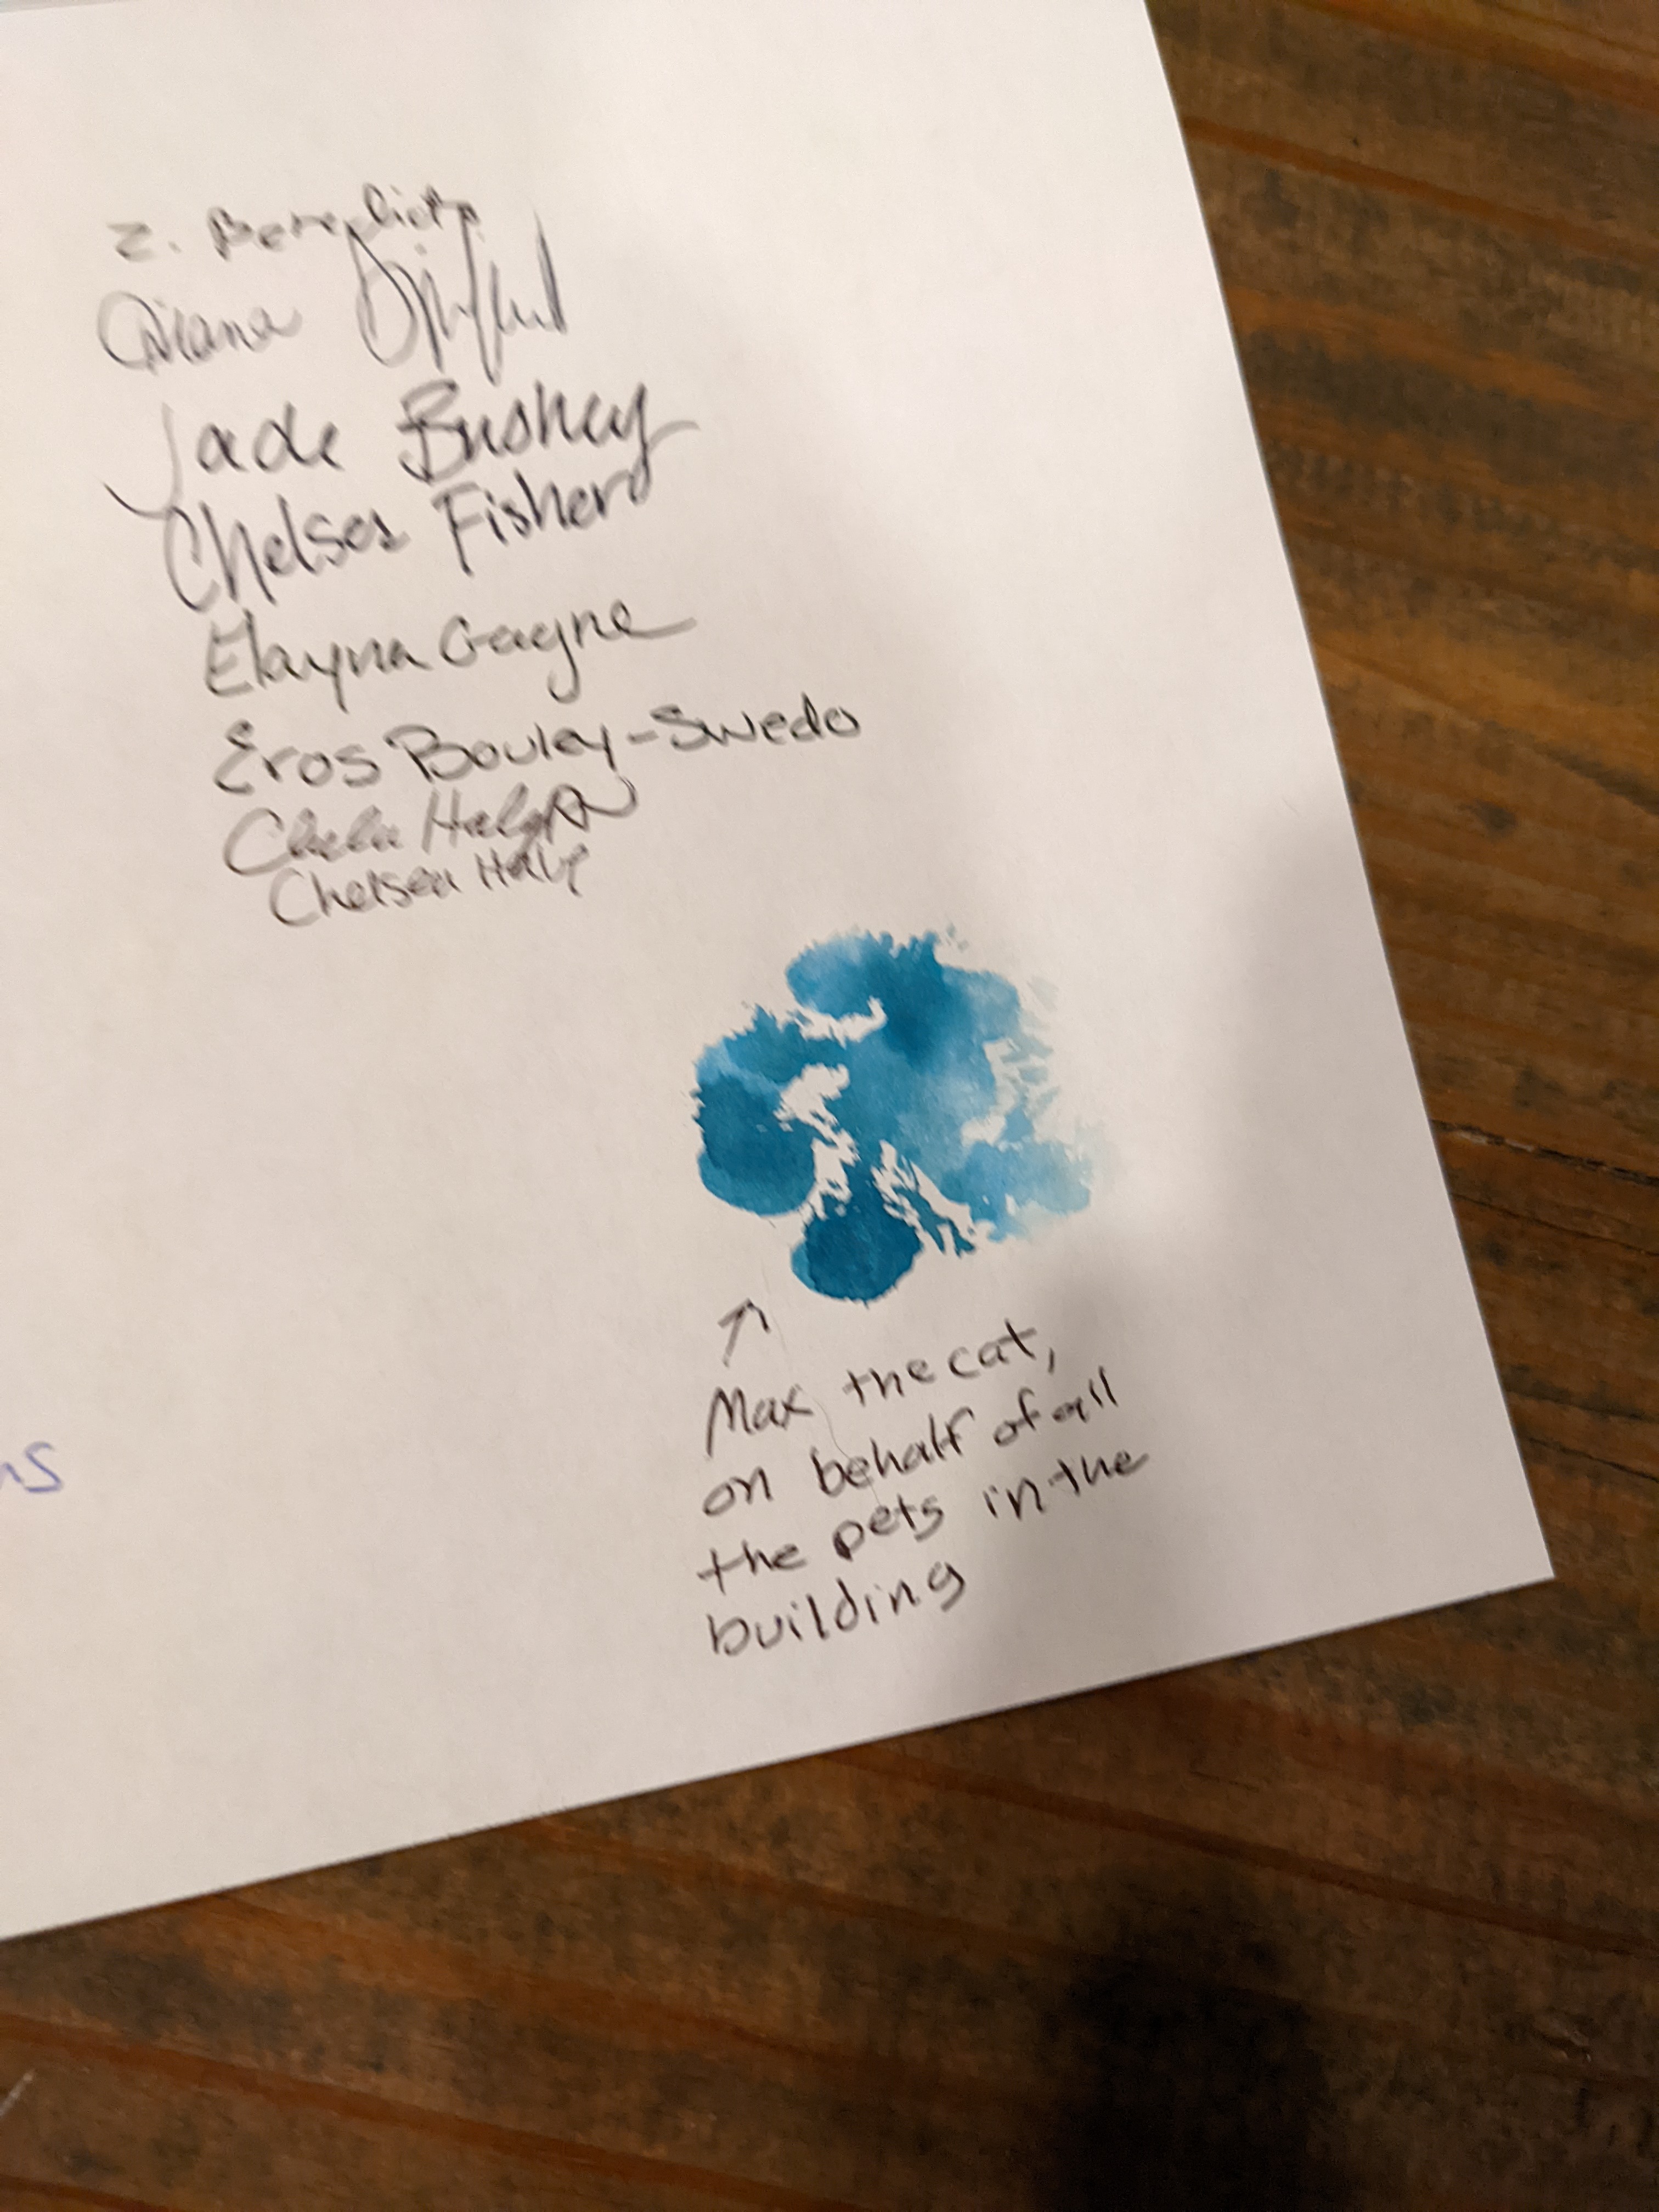 Z. Benedicto
Diana
Jade Bushey
Chelsea Fisher
Elayna Gagne
Eros Bouley-Swedo
Chelsea
↑
Max the cat,
on behalf of all
the pets in the
building